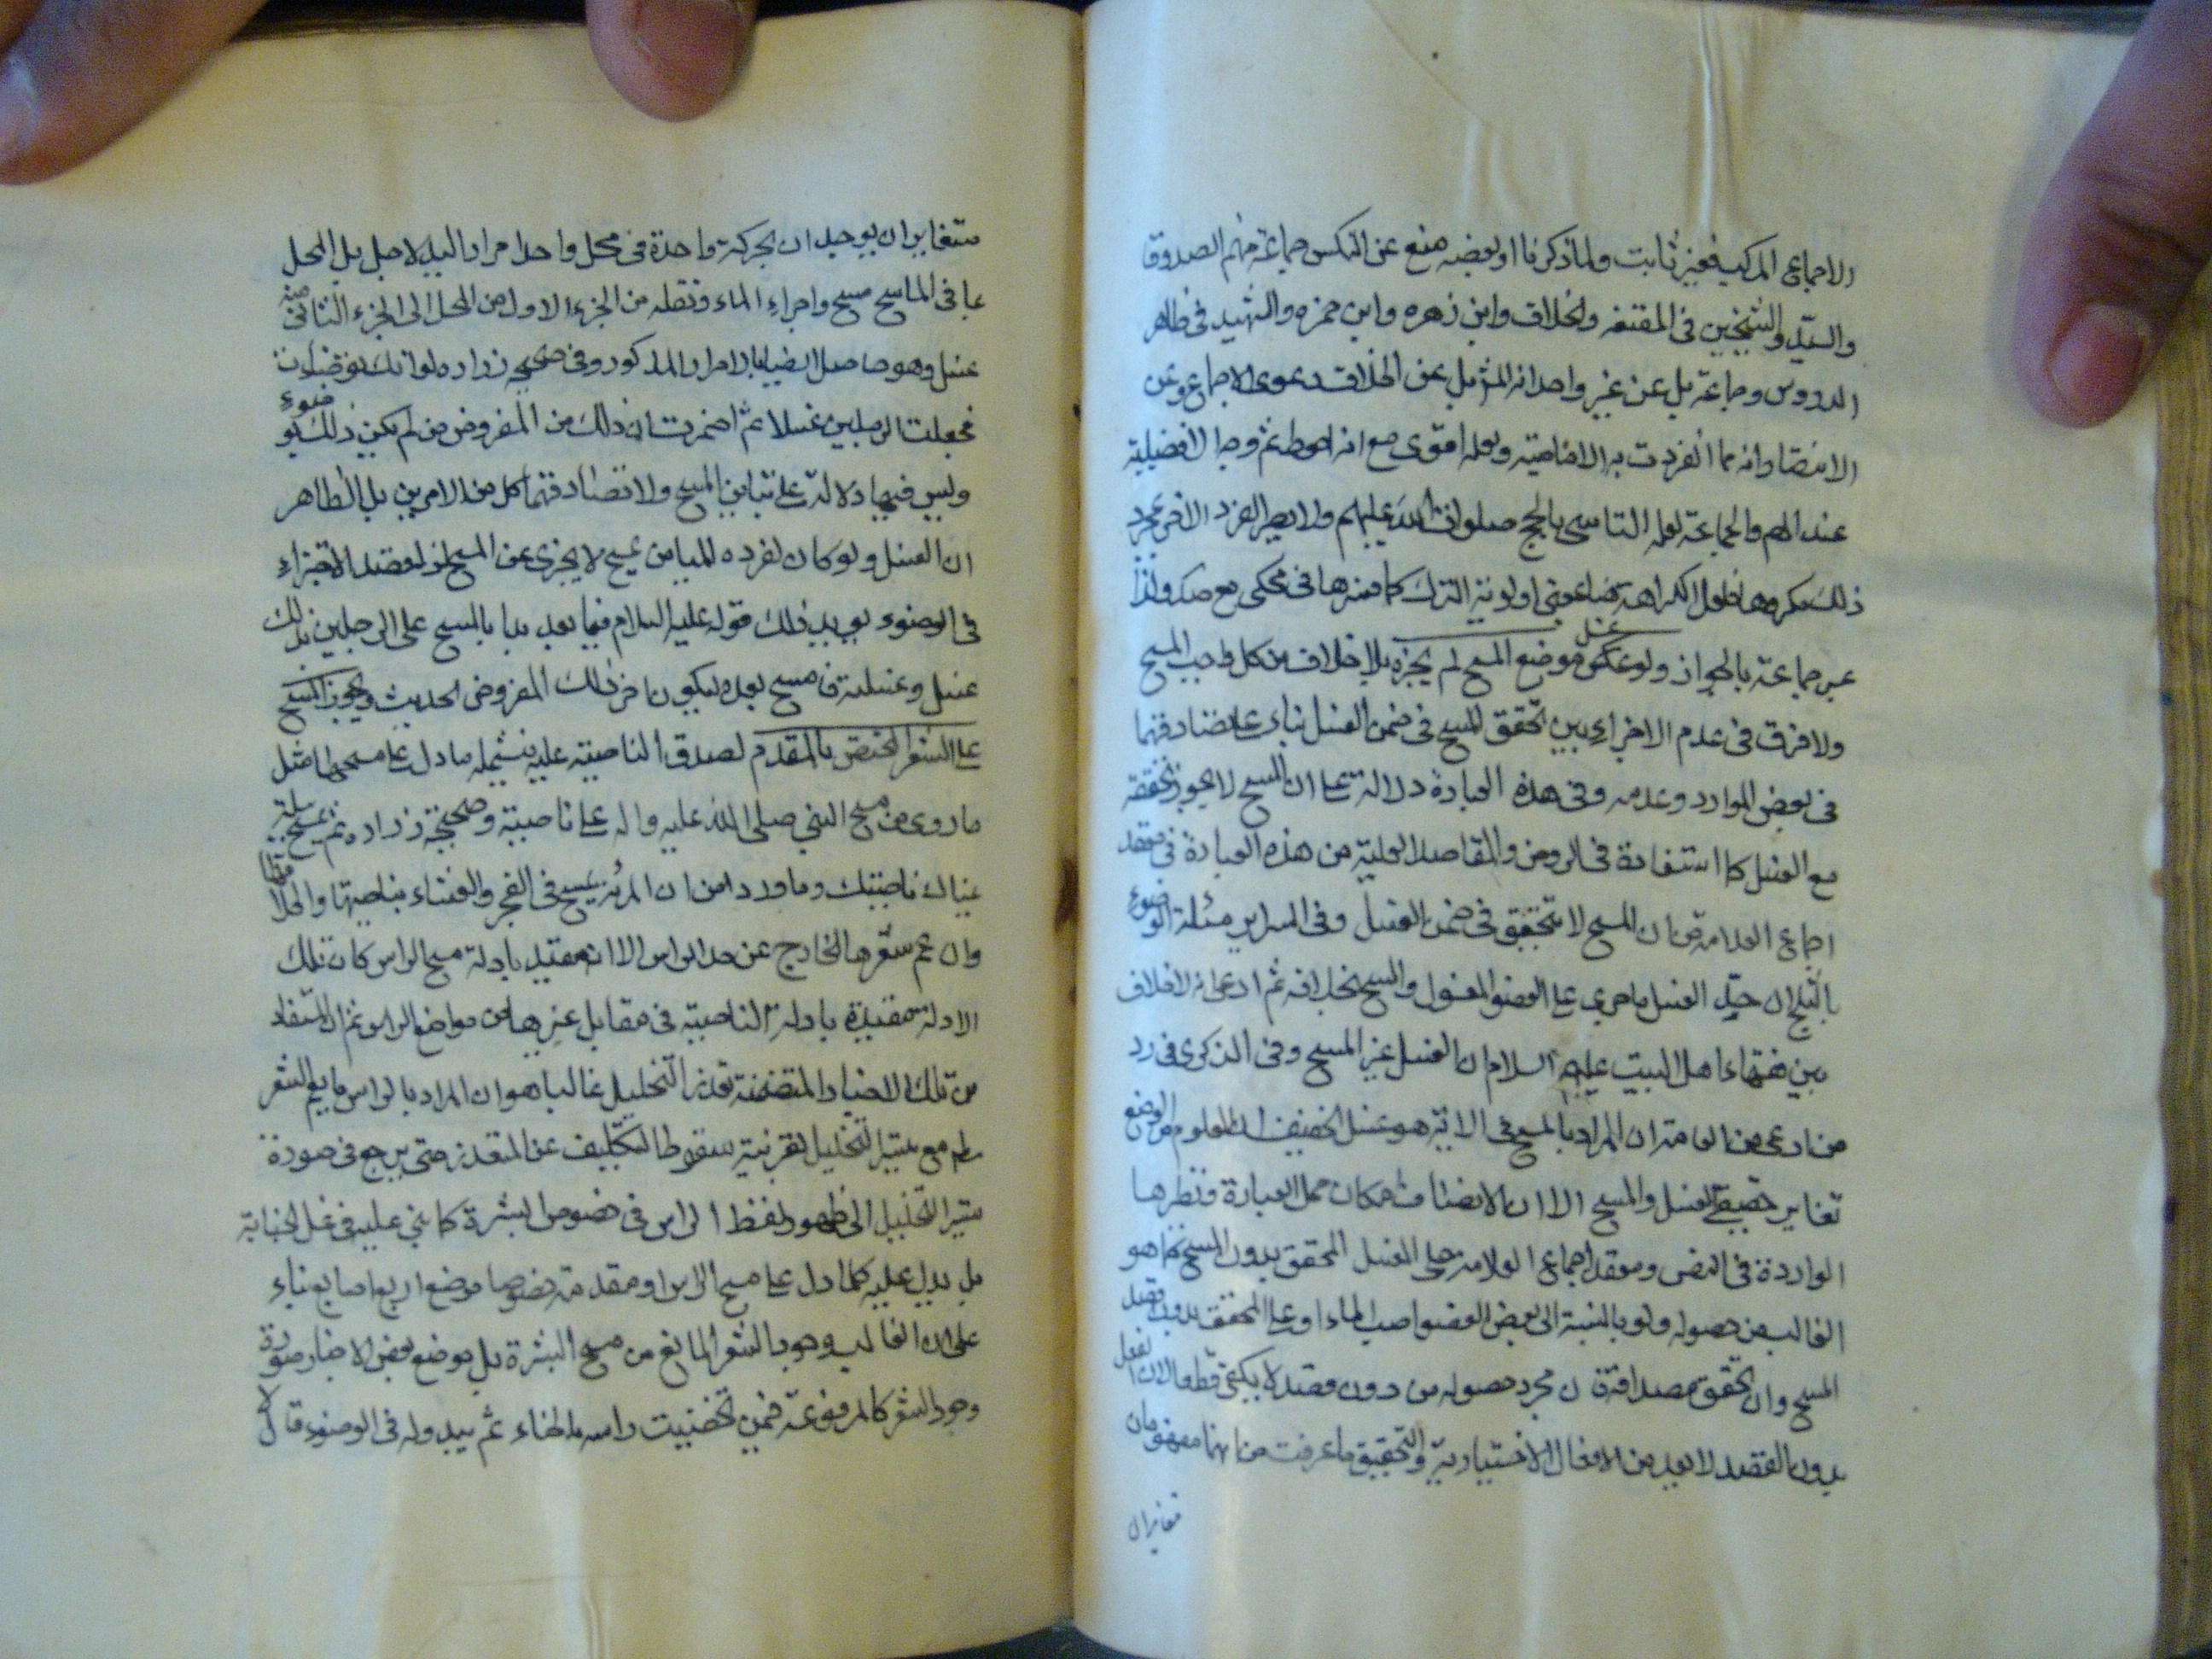 الاجماع المركب فغير ثابت ولما ذكرنا او لبعضه منع عن النكس جماعة منهم الصدوق
والسيد والشيخين في المقنعه والخلاف وابن زهره وابن حمزه والشهيد في ظاهر
الدروس وجماعة بل عن غير واحد انه المش بل عن الخلاف دعوى الاجماع وعن
الانتصار انه مما انفردت به الاماميه ولعله اقوى مع انه احوط ثم وجه الافضلية
عند المص والجماعة لعله التاسى بالحجج صلوات الله عليهم ولا يصير الفرد الاخر بمجرد
ذلك مكروها اولوية الترك كما في محكى مع صد ولذا
عبر جماعة بالجواز ولو غسل موضع المسح لم يجزه بلا خلاف من كل واجب المسح
ولا فرق في عدم الاجزاء بين تحقق المسح في ضمن الغسل بناء على تصادقهما
في بعض الموارد وعدمه وفي هذه العبارة دلالة على ان المسح لا يجوز تحققه
مع الغسل كما استفادة في الروض والمقاصد العلية من هذه العبارة في معقد
اجماع العلامة من ان المسح لا يتحقق في ضمن الغسل وفي السراير مسئلة الوضوء
بالثلج ان حد الغسل ما جرى على العضو المغسول والمسح بخلافه ثم ادعى انه لا خلاف
بين فقهاء اهل البيت عليهم السلام ان الغسل غير المسح وفي الذكرى في رد
من ادعى من العامة ان المراد بالمسح في الاية هو غسل الخفيف ان المعلوم من الوضع
تغاير حقيقة الغسل والمسح الا ان الانصاف امكان حمل العبارة ونظرها
الواردة في النص ومعقد اجماع العلامة على الغسل المحقق بدون المسح كما هو
الغالب من حصوله ولو بالنسبة الى بعض العضو بصب الماء او على المحقق بدون قصد
المسح وان تحقق مصداقه فان مجرد حصوله من دون قصد لا يكفي قطعا لان الفعل
بدون القصد لا يعد من الافعال الاختيارية والتحقيق ما عرفت من انهما مفهومان
متغايران
متغايران يوجدان بحركة واحدة في محل واحد امرار اليد لاجل بل المحل
بما في الماسح مسح واجراء الماء ونقله من الجزء الاول من المحل الى الجزء الثاني منه
غسل وهو حاصل ايضا بالامرار المذكور وفي صحيحه زراره لو انك توضات
فجعلت الرجلين غسلا ثم اضمرت ان ذلك من المفروض لم يكن ذلك بوضوء
وليس فيها دلالة على تباين المسح ولا تصادقهما كل من الامرين بل الظاهر
ان الغسل ولو كان لفرده المباين يمسح لا يجزى عن المسح لو قصد الاجتزاء
في الوضوء يويد ذلك قوله عليه السلام فيما بعد بدا بالمسح على الرجلين بدا لك
غسل وغسلته فامسح بعده ليكون اخر ذلك المفروض الحديث ويجوز المسح
على الشعر المختص بالمقدم لصدق الناصية عليه فيشمله ما دل على مسحها مثل
ما روى من مسح النبي صلى الله عليه واله على ناصيته وصحيحة زراره ثم تمسح ببلة
يمناك ناصيتك وما ورد من ان المرئه تمسح في الفجر والعشاء بناصيتها واطلاقها
وان عم شعرها الخارج عن حد الراس الا انه مقيد بادلة مسح الراس كما ان تلك
الادلة مقيدة بادلة الناصية في مقابل غيرها من مواضع الراس ثم ان المستفاد
من تلك الاخبار المتضمنة تعذر التخليل غالبا هو ان المراد بالراس ما يعم الشعر
مطم مع تيسر التخليل لقرينة سقوط التكليف عن المتعذر حتى يرجع في صورة
تيسر التخليل الى ظهور لفظ الراس في خصوص البشرة كما بني عليه في غسل الجنابة
بل يدل عليه كلما دل على مسح الراس او مقدمه خصوصا موضع اربع اصابع بناء
على ان الغالب وجوب الشعر المانع من مسح البشرة بل موضع بعض الاخبار صورة
وجود الشعر كالمرفوعة فيمن تخضب راسه بالحناء ثم يبدو له في الوضوء قال لا